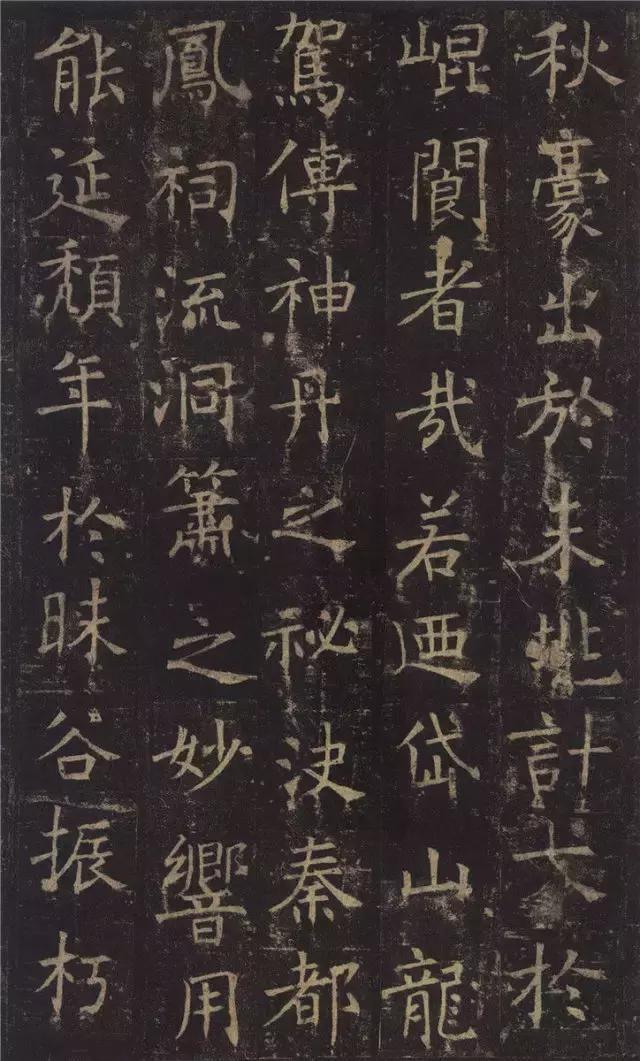 秋豪出於未兆計大於
崐閬者㢤若迺岱山龍
駕傅神丹之祕決秦都
鳳祠流洞簫之妙響用
能延頹年於昧谷振朽